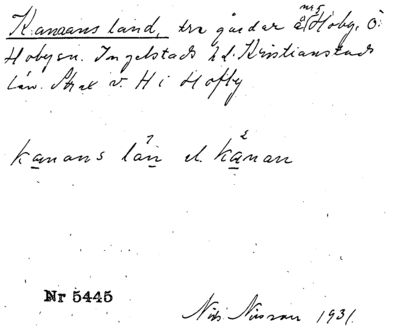 Kanaans land, tre gårdar å nr 5 Hoby, Ö.
Hoby sn. Ingelstads hd. Kristianstads
län. Strax v. H i Hofby
kanans län el. kanan
Nr 5445
Nils Nilsson 1931.